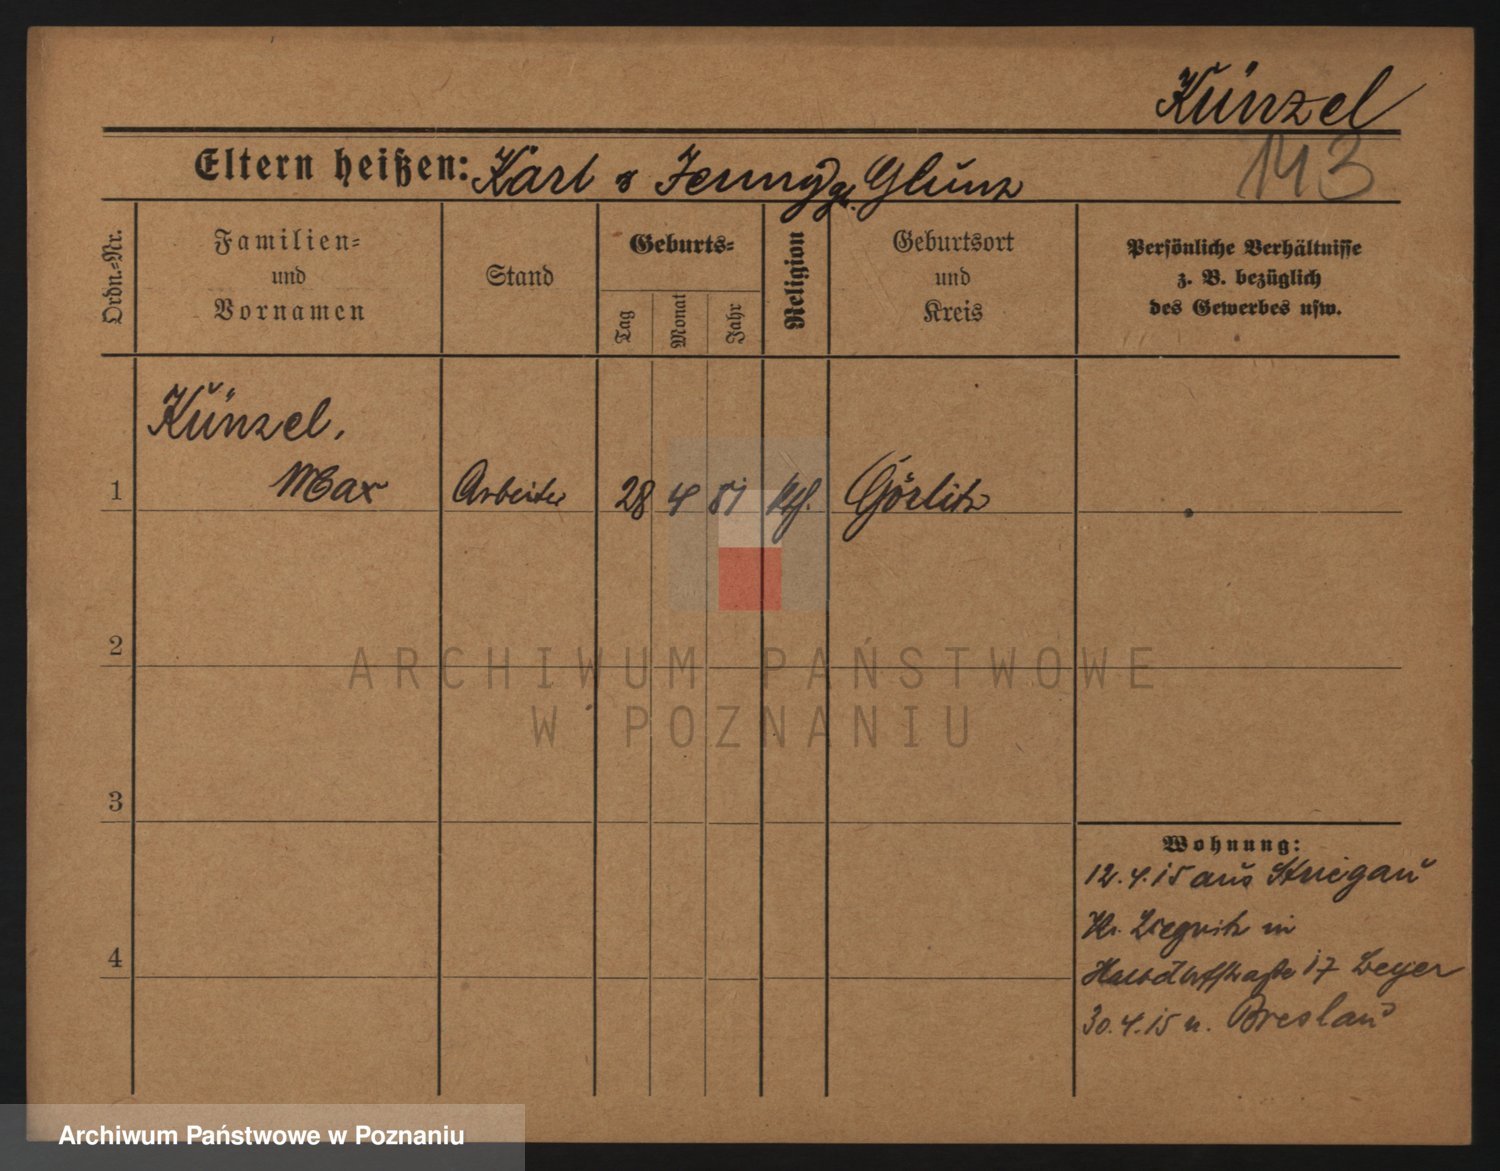 Künzel
Eltern heißen: Karl & Jenny gb. Glunz
143
Ordn.-Nr.
Familien-
und
Vornamen
Stand
Geburts-
Tag
Monat
Jahr
Religion
Geburtsort
und
Kreis
Persönliche Verhältnisse
z. B. bezüglich
des Gewerbes usw.
Künzel,
1 Max Arbeiter 28 4 51 Görlitz
2
3
4
Wohnung:
12.4.15 aus Striegau
Kr. Liegnitz in
17 Beyer
30.4.15 n. Breslau
ARCHIWUM PAŃSTWOWE
W POZNANIU
Archiwum Państwowe w Poznaniu